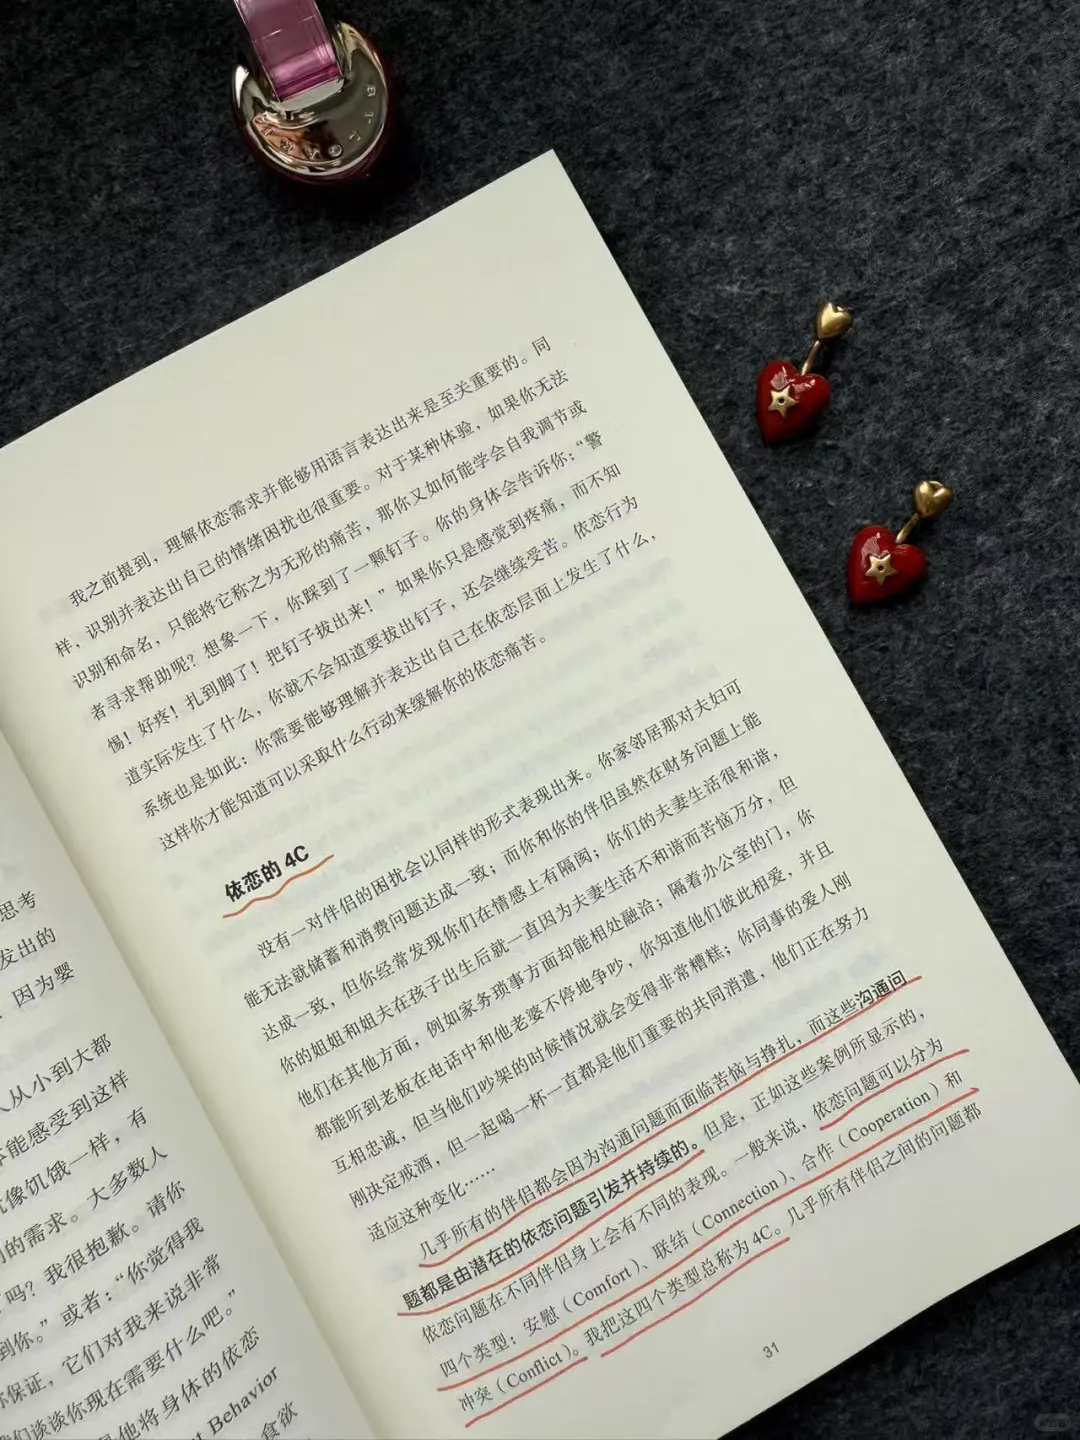 BVLGARI
我之前提到，理解依恋需求并能够用语言表达出来是至关重要的。同
样，识别并表达出自己的情绪困扰也很重要。对于某种体验，如果你无法
识别和命名，只能将它称之为无形的痛苦，那你又如何能学会自我调节或
者寻求帮助呢？想象一下，你踩到了一颗钉子。你的身体会告诉你：“警
惕！好疼！扎到脚了！把钉子拔出来！”如果你只是感觉到疼痛，而不知
道实际发生了什么，你就不会知道要拔出钉子，还会继续受苦。依恋行为
系统也是如此；你需要能够理解并表达出自己在依恋层面上发生了什么，
这样你才能知道可以采取什么行动来缓解你的依恋痛苦。
依恋的 4C
没有一对伴侣的困扰会以同样的形式表现出来。你家邻居那对夫妇可
能无法就储蓄和消费问题达成一致；而你和你的伴侣虽然在财务问题上能
达成一致，但你经常发现你们在情感上有隔阂；你们的夫妻生活很和谐，
你的姐姐和姐夫在孩子出生后就一直因为夫妻生活不和谐而苦恼万分，但
他们在其他方面，例如家务琐事方面却能相处融洽；隔着办公室的门，你
都能听到老板在电话中和他老婆不停地争吵，你知道他们彼此相爱，并且
互相忠诚，但当他们吵架的时候情况就会变得非常糟糕；你同事的爱人刚
刚决定戒酒，但一起喝一杯一直都是他们重要的共同消遣，他们正在努力
适应这种变化……
几乎所有的伴侣都会因为沟通问题而面临苦恼与挣扎，而这些沟通问
题都是由潜在的依恋问题引发并持续的。但是，正如这些案例所显示的，
依恋问题在不同伴侣身上会有不同的表现。一般来说，依恋问题可以分为
四个类型：安慰（Comfort）、联结（Connection）、合作（Cooperation）和
冲突（Conflict）。我把这四个类型总称为 4C。几乎所有伴侣之间的问题都
31
思考
发出的
因为婴
人从小到大都
能感受到这样
就像饥饿一样，有
的需求。大多数人
吗？我很抱歉。请你
到你。”或者：“你觉得我
保证，它们对我来说非常
们谈谈你现在需要什么吧。”
是他将身体的依恋
t Behavior
食欲